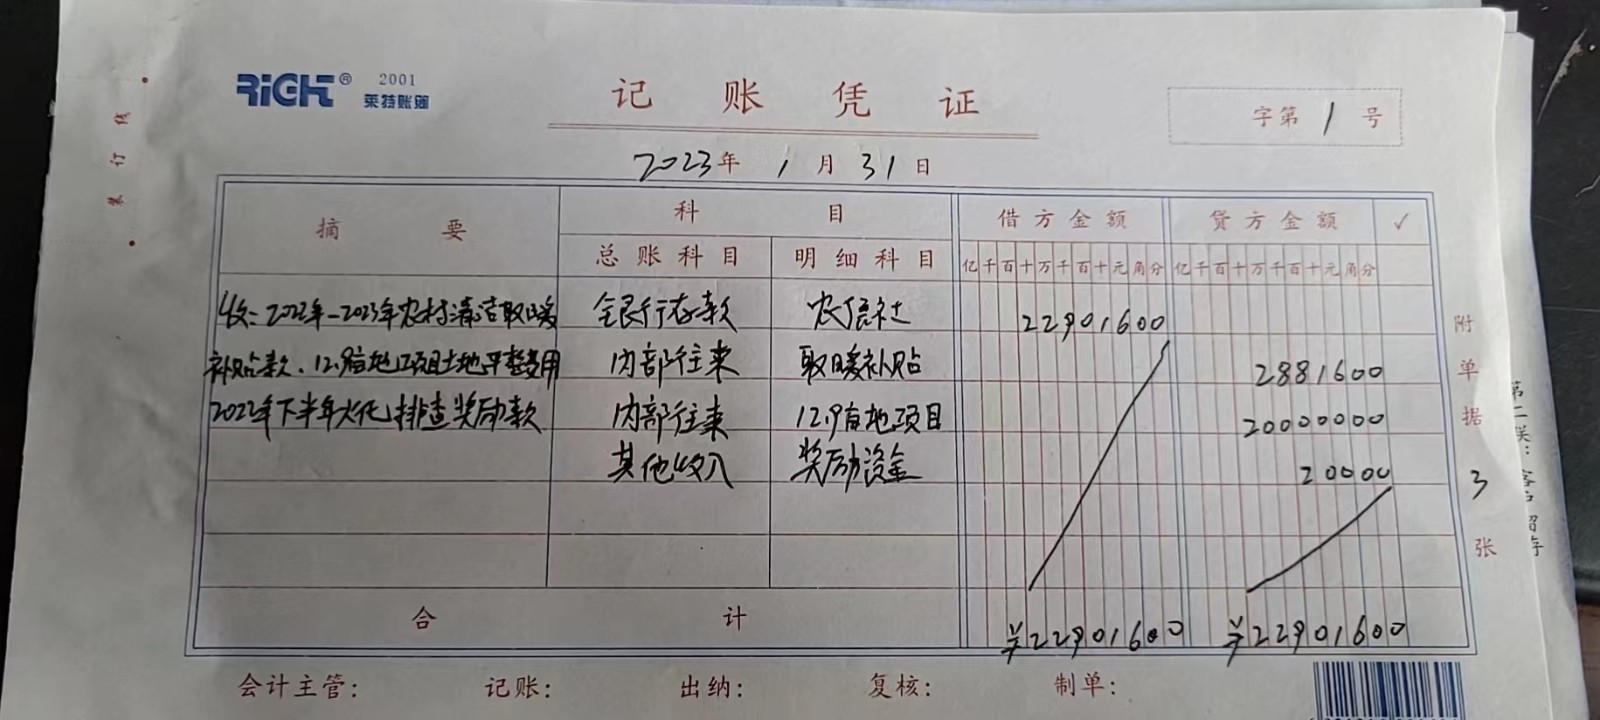 RiCH® 2001
莱特账簿
记账凭证
字第 1 号
2023年 1月 31日
装订线
摘要 科目 借方金额 贷方金额 ✓
总账科目 明细科目 亿千百十万千百十元角分 亿千百十万千百十元角分
收:2022年-2023年农村清洁取暖 银行存款 农信社 22901600
补贴款、12.9亩地项目土地平整费用 内部往来 取暖补贴 2881600
2022年下半年火化排查奖励款 内部往来 12.9亩地项目 20000000
其他收入 奖励资金 20000
合计 ¥22901600 ¥22901600
附单据 3 张
会计主管: 记账: 出纳: 复核: 制单:
第二联:客户留存